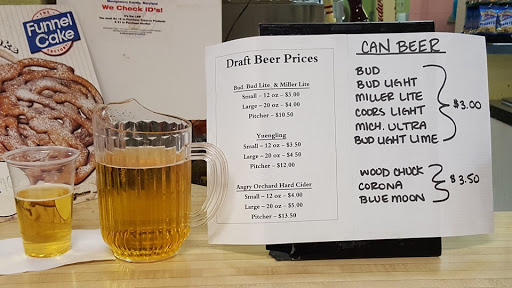 THE
Funnel
Cake
FACTORY
Montgomery County, Maryland
We Check ID's!
Draft Beer Prices
Bud, Bud Lite, & Miller Lite
Small – 12 oz – $3.00
Large – 20 oz – $4.00
Pitcher – $10.50
Yuengling
Small – 12 oz – $3.50
Large – 20 oz – $4.50
Pitcher – $12.00
Angry Orchard Hard Cider
Small – 12 oz – $4.00
Large – 20 oz – $5.00
Pitcher – $13.50
CAN BEER
BUD
BUD LIGHT
MILLER LITE
COORS LIGHT
MICH. ULTRA
BUD LIGHT LIME
$3.00
WOOD CHUCK
CORONA
BLUE MOON
$3.50